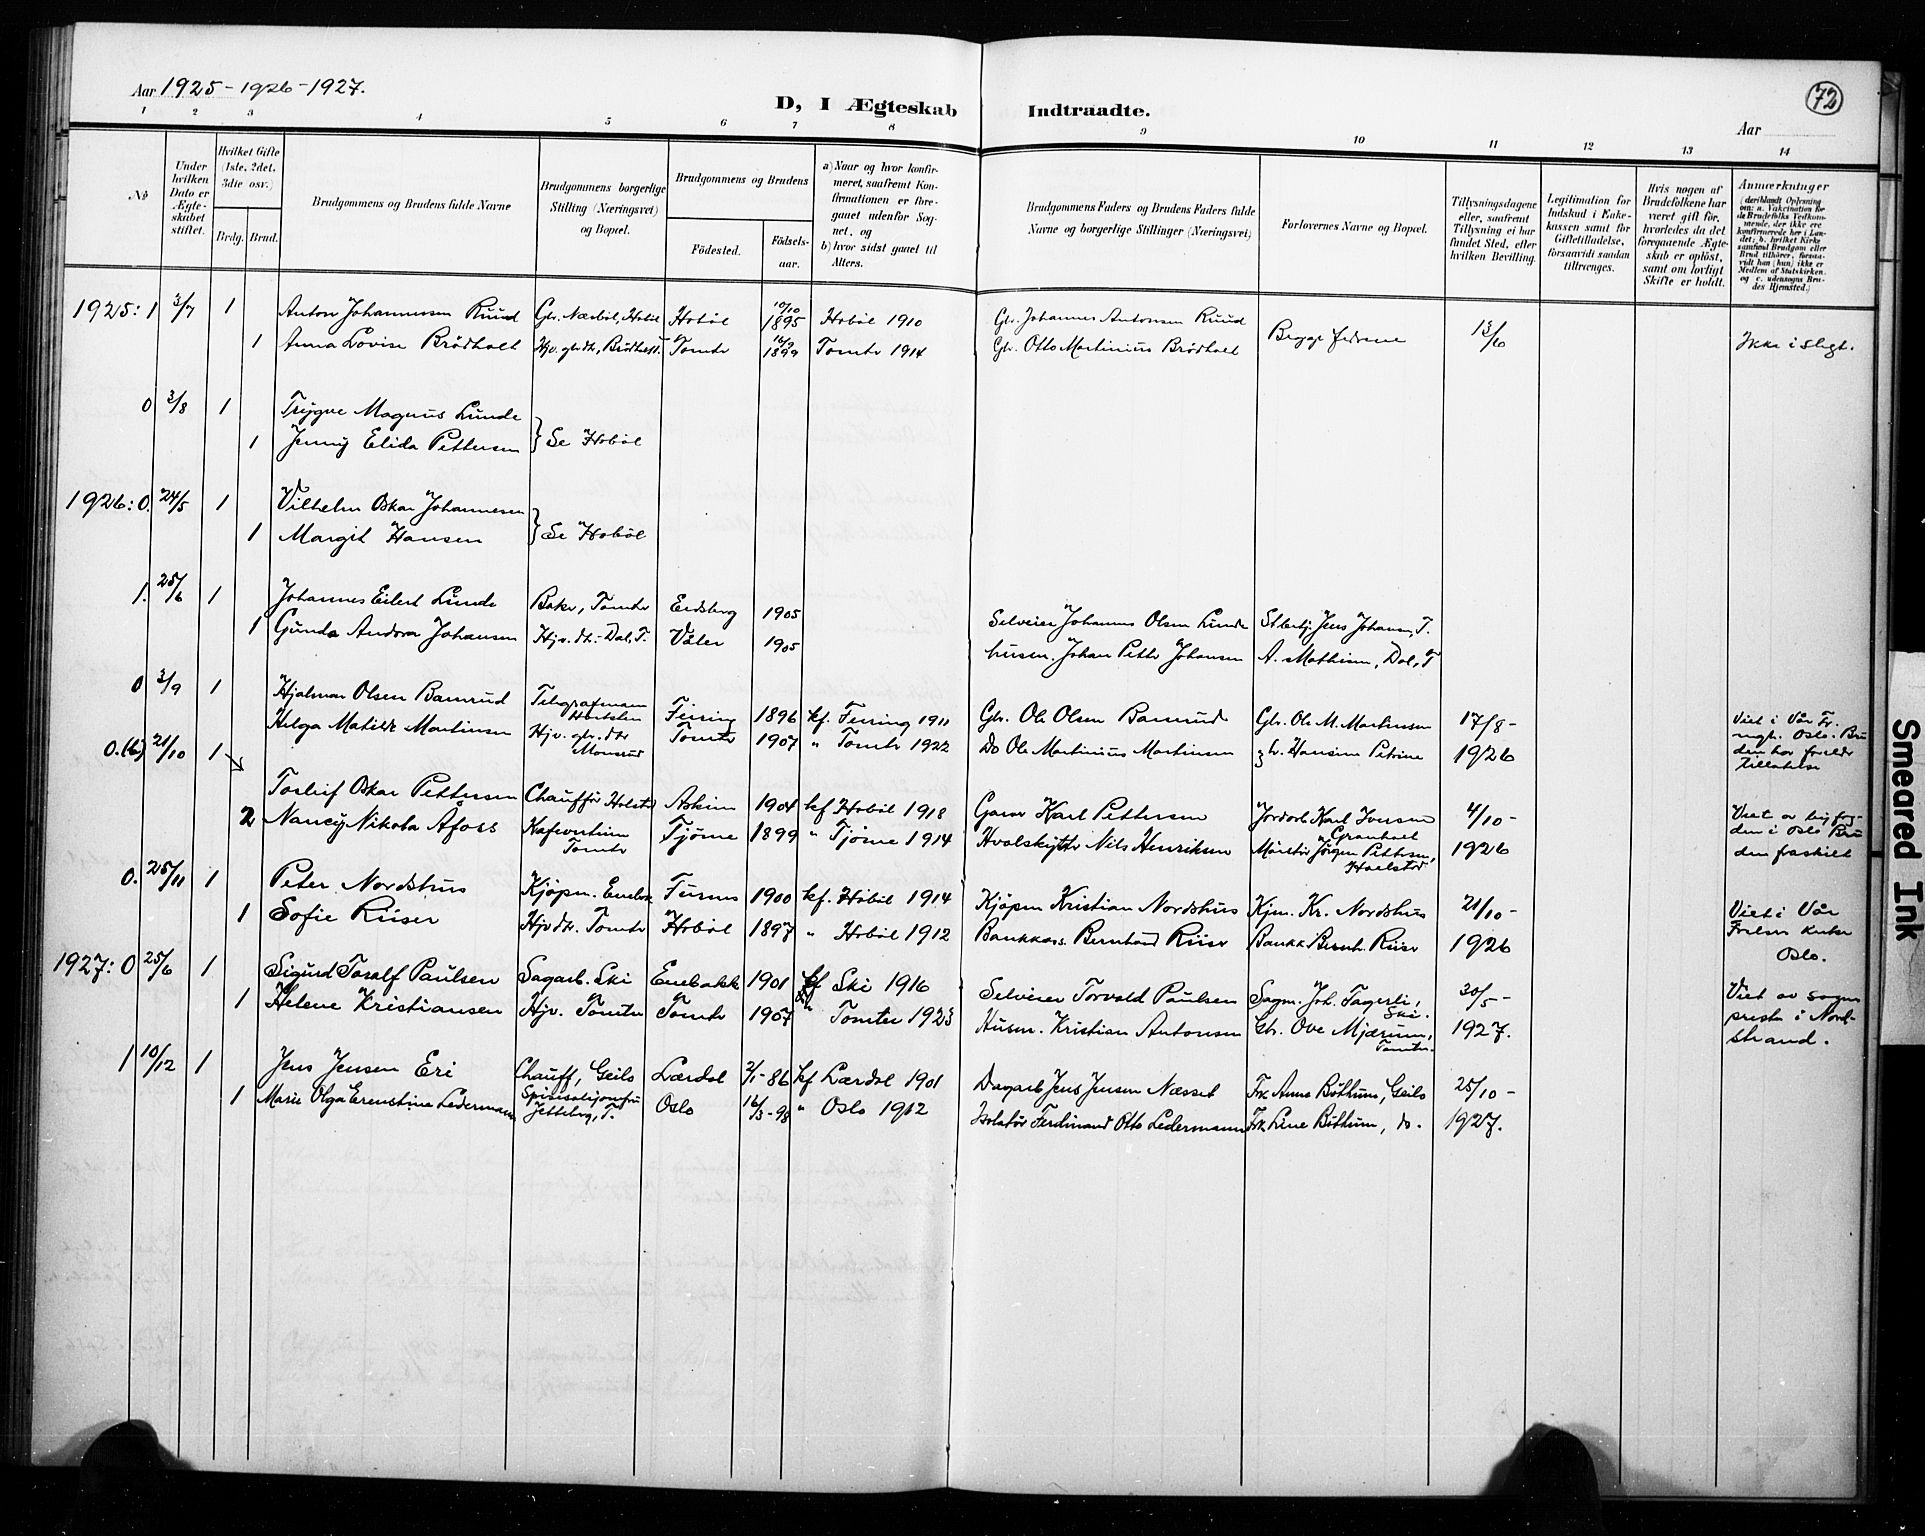 Aar 1925-1926-1927.
72
D, I Ægteskab Indtraadte.
Aar
1 2 3 4 5 6 7 8 9 10 11 12 13 14
No
Under hvilken Dato er Ægteskabet stiftet.
Hvilket Gifte (1ste, 2det, 3die osv.)
Brdg. Brud.
Brudgommens og Brudens fulde Navne
Brudgommens borgerlige Stilling (Næringsvei) og Bopæl.
Brudgommens og Brudens
Fødested. Fødselsaar.
a) Naar og hvor konfirmeret, saafremt Konfirmationen er foregaaet udenfor Sognet, og
b) hvor sidst gaaet til Alters.
Brudgommens Faders og Brudens Faders fulde Navne og borgerlige Stillinger (Næringsvei)
Forlovernes Navne og Bopæl.
Tillysningsdagene eller, saafremt Tillysning ei har fundet Sted, efter hvilken Bevilling.
Legitimation for Indskud i Enkekassen samt for Giftetilladelse, forsaavidt saadan tiltrænges.
Hvis nogen af Brudefolkene har været gift før, hvorledes da det foregaaende Ægteskab er opløst, samt om lovligt Skifte er holdt.
Anmærkninger
(deriblandt Oplysning om: a. Vaccination for de Brudefolks Vedkommende, der ikke ere konfirmerede her i Landet; b. hvilket Kirkesamfund Brudgom eller Brud tilhører, forsaavidt han (hun) ikke er Medlem af Statskirken, og c. udensogns Brudes Hjemsted.)
1925: 1 3/7 1 Anton Johannessen Ruud Gbr. Næsbøl, Hobøl Hobøl 10/10 1895 Hobøl 1910 Gbr. Johannes Antonsen Ruud Begge fedrene 13/6
1 Anna Lovise Brødholt Hjv. gbr.dtr., Brødholt T. Tomter 1899 Tomter 1914 Gbr. Otto Martinius Brødholt Ikke i slegt.
0 3/8 1 Trygve Magnus Lunde
1 Jenny Elida Pettersen } Se Hobøl
1926: 0. 24/5 1 Vilhelm Oskar Johannesen
1 Margit Hansen } Se Hobøl
1. 25/6 1 Johannes Eilert Lunde Baker, Tomter Eidsberg 1905 Selveier Johannes Olsen Lunde Stbetj. Jens Johansen, T.
1 Gunda Andora Johansen Hjv. dtr. Dal, T. Våler 1905 husm. Johan Petter Johansen A. Mathisen, Dal, T
0 3/9 1 Hjalmar Olsen Bamrud Telegrafmann 1896 kf. 1911 Gbr. Ole Olsen Bamrud Gbr. Ole M. Martinsen 17/8-
Helga Matilde Martinsen Hjv. gbr. dtr Monsrud Tomter 1907 " Tomter 1922 Do Ole Martinius Martinsen Hansine Petrine 1926
Viet i Vår Fr. Oslo. Bruden har foreldretillatelse
0. (6) 21/10 1 Torleif Oskar Pettersen Chauffør Askim 1904 kf Hobøl 1918 Garver Karl Pettersen Jordarb. Karl Iversen Granholt 4/10-
2 Nancy Nikola Åfoss Kafevertinne Tomter Tjøme 1899 " Tjøme 1914 Hvalskytter Nils Henriksen Jørgen Pettersen, 1926
Viet av byfogden i Oslo Bruden fraskilt
0. 25/11 1 Peter Nordshus Kjøpm. Enebak 1900 kf. Hobøl 1914 Kjøpm Kristian Nordshus Kjm. Kr. Nordshus 21/10-
1 Sofie Riiser Hjv dtr. Tomter Hobøl 1897 " Hobøl 1912 Bankkass. Bernhard Riiser Bankk. Bernh. Riiser 1926
Viet i Vår Frelsers kirke Oslo.
1927: 0 25/6 1 Sigurd Toralf Paulsen Sagarb. Ski Enebakk 1901 kf Ski 1916 Selveier Torvald Paulsen Sagm. Joh. Fagerli, Ski. 30/5-
1 Helene Kristiansen Hjv. Tomter Tomter 1907 " Tomter 1923 Husm. Kristian Antonsen Gbr. Ove Mjærum, Tomter. 1927.
Viet av sogneprest i Nordstrand.
1 10/12 1 Jens Jensen Eri Chauff, Geilo Lærdal 2/1-86 kf Lærdal 1901 Dagarb Jens Jensen Næsset Frk. Anna Bøthum, Geilo 25/10-
1 Marie Olga Ernstine Ledermann T. Oslo 16/3-98 " Oslo 1912 Isolatør Ferdinand Otto Ledermann Frk Line Bøthum, do. 1927.
Smeared Ink